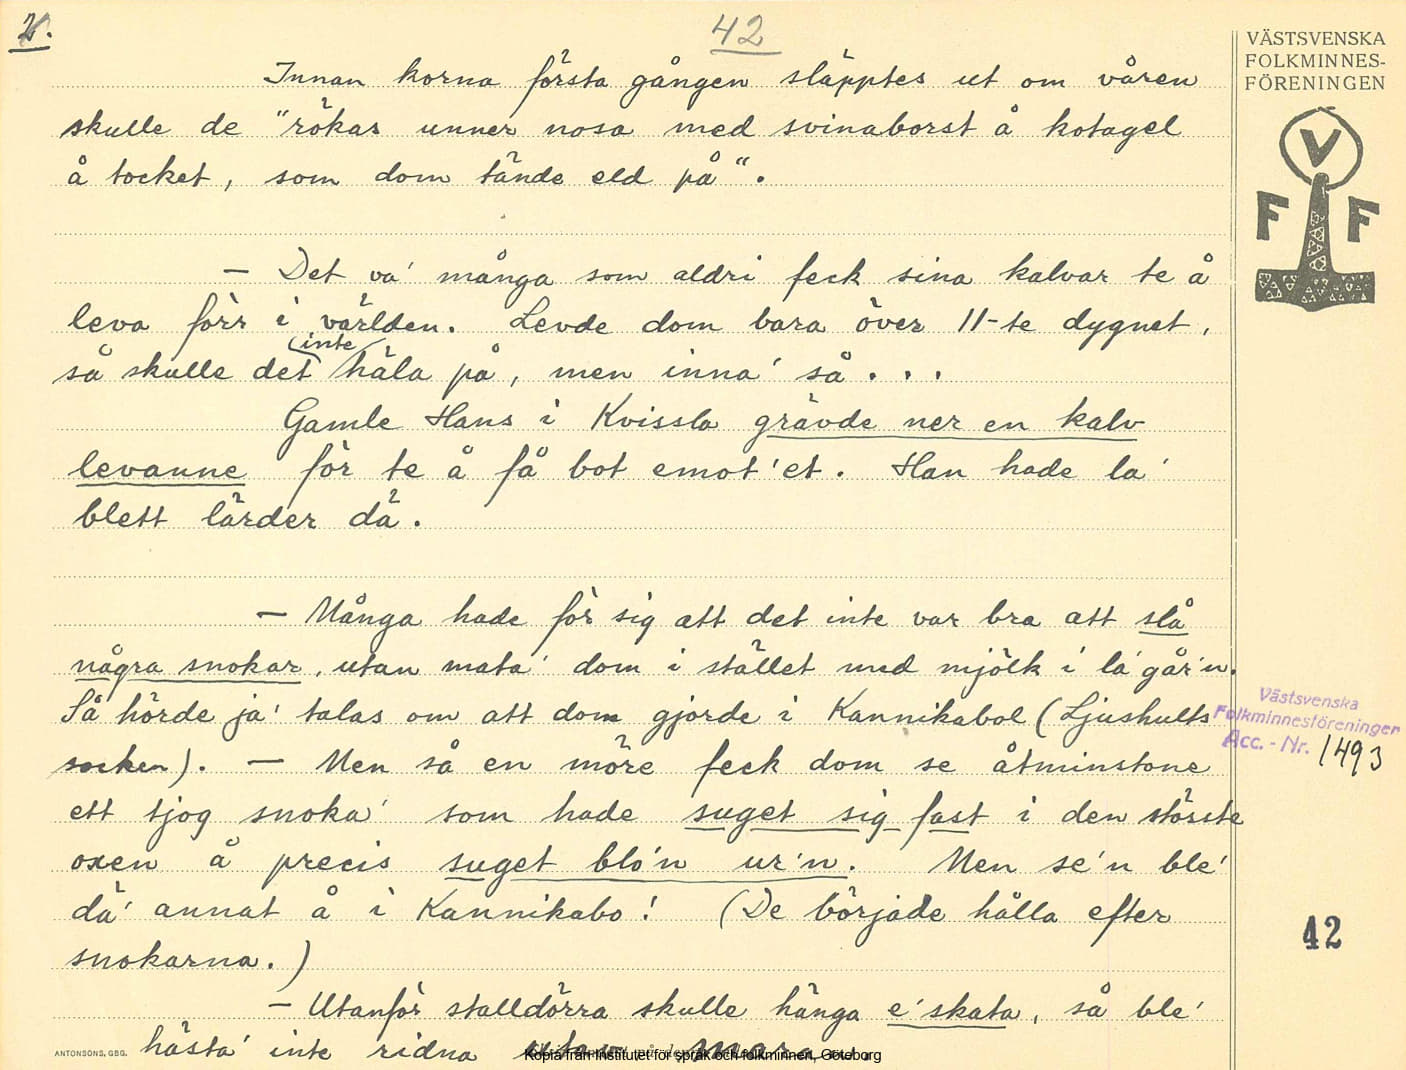 2.
42
VÄSTSVENSKA
FOLKMINNES-
FÖRENINGEN
V
F F
Innan korna första gången släpptes ut om våren
skulle de "rökas unner nosa med svinaborst å kotagel
å tocket, som dom tände eld på".
— Det va' många som aldri feck sina kalvar te å
leva förr i världen. Levde dom bara över 11-te dygnet,
så skulle det (inte) häla på, men inna' så . . .
Gamle Hans i Kvissla grävde ner en kalv
levanne för te å få bot emot'et. Han hade la'
blett lärder dä.
— Många hade för sig att det inte var bra att slå
några snokar, utan mata' dom i stället med mjölk i la'går'n.
Så hörde ja' talas om att dom gjorde i Kannikabol (Ljushults
socken). — Men så en möre feck dom se åtminstone
ett tjog snoka' som hade suget sig fast i den störste
oxen å precis suget blo'n ur'n. Men se'n ble'
dä' annat å i Kannikabo! (De började hålla efter
snokarna.)
— Utanför stalldörra skulle hänga e' skata, så ble'
hästa' inte ridna utav mara
Västsvenska
Folkminnesföreningen
Acc. - Nr. 1493
42
ANTONSONS, GBG.
Kopia från Institutet för språk och folkminnen, Göteborg